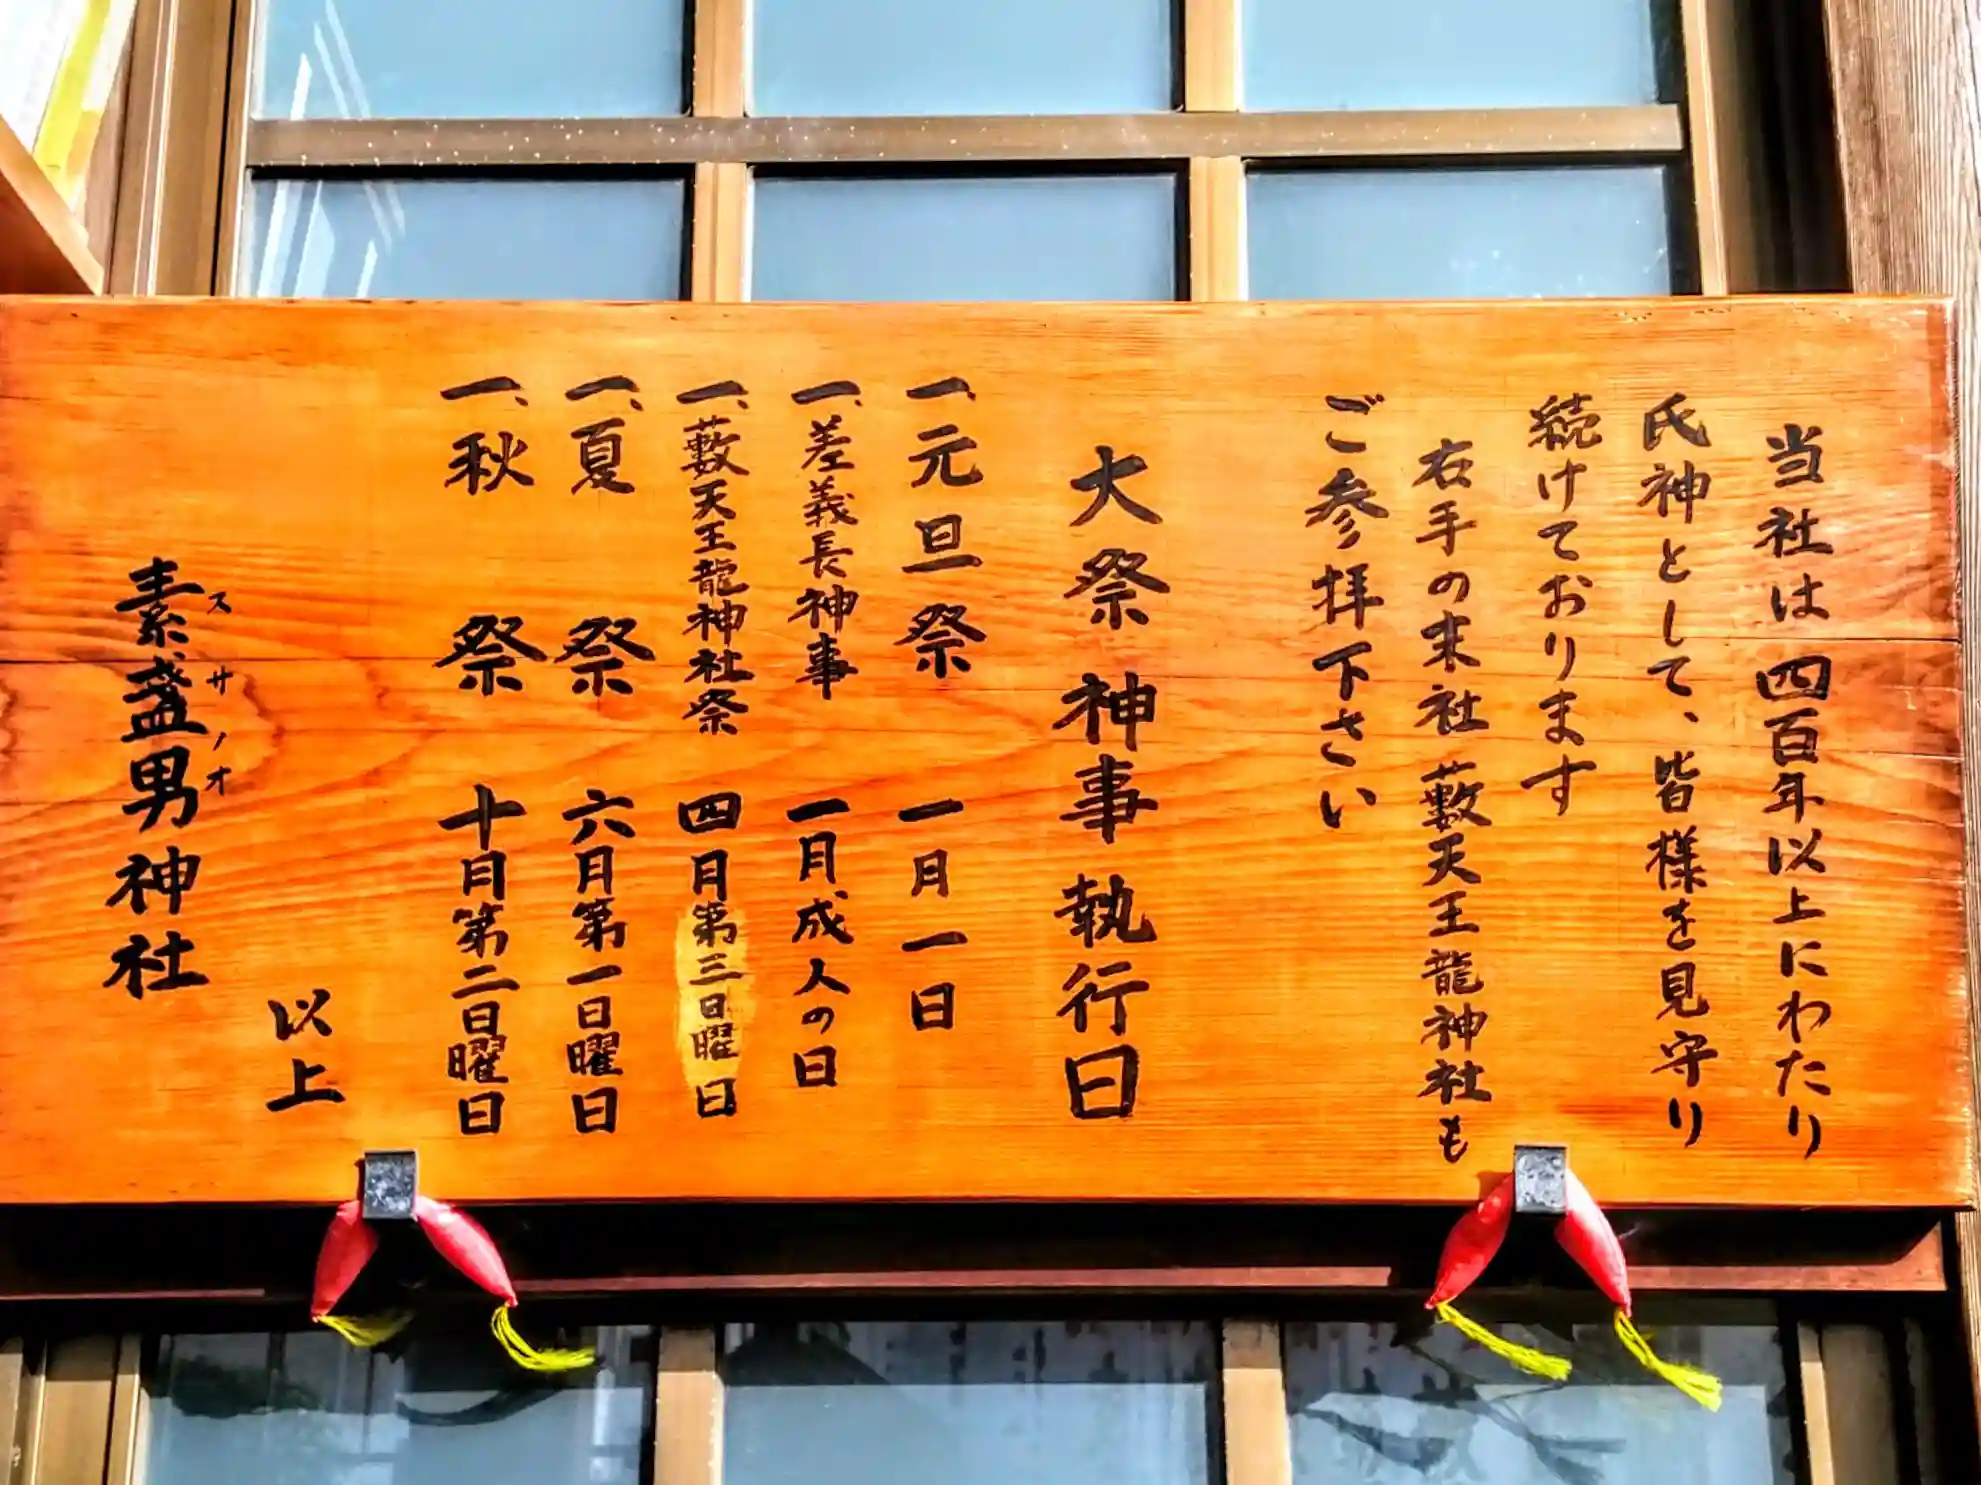 当社は四百年以上にわたり
氏神として、皆様を見守り
続けております
右手の末社藪天王龍神社も
ご参拝下さい
大祭神事執行日
一、元旦祭 一月一日
一、差義長神事 一月成人の日
一、藪天王龍神社祭 四月第三日曜日
一、夏祭 六月第一日曜日
一、秋祭 十月第二日曜日
以上
素盞男神社
スサノオ